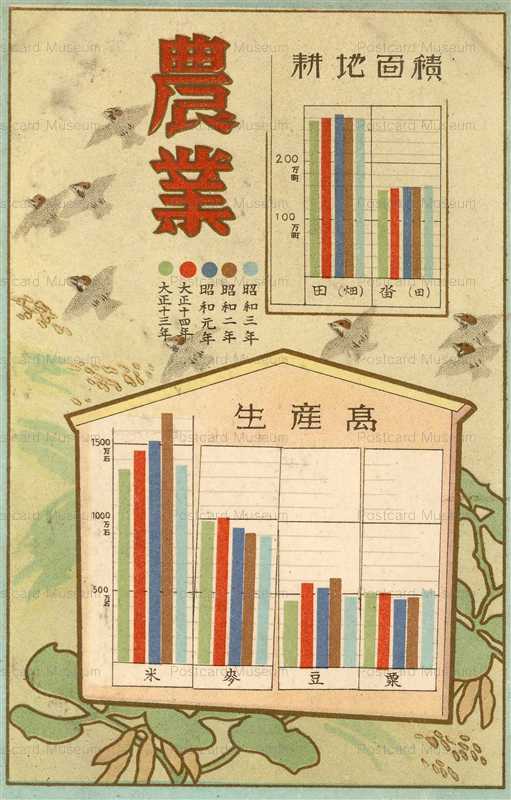 農業
耕地面積
200万町
100万町
田(畑)
畓(田)
大正十三年
大正十四年
昭和元年
昭和二年
昭和三年
生産高
1500万石
1000万石
500万石
米
麥
豆
粟
Postcard Museum